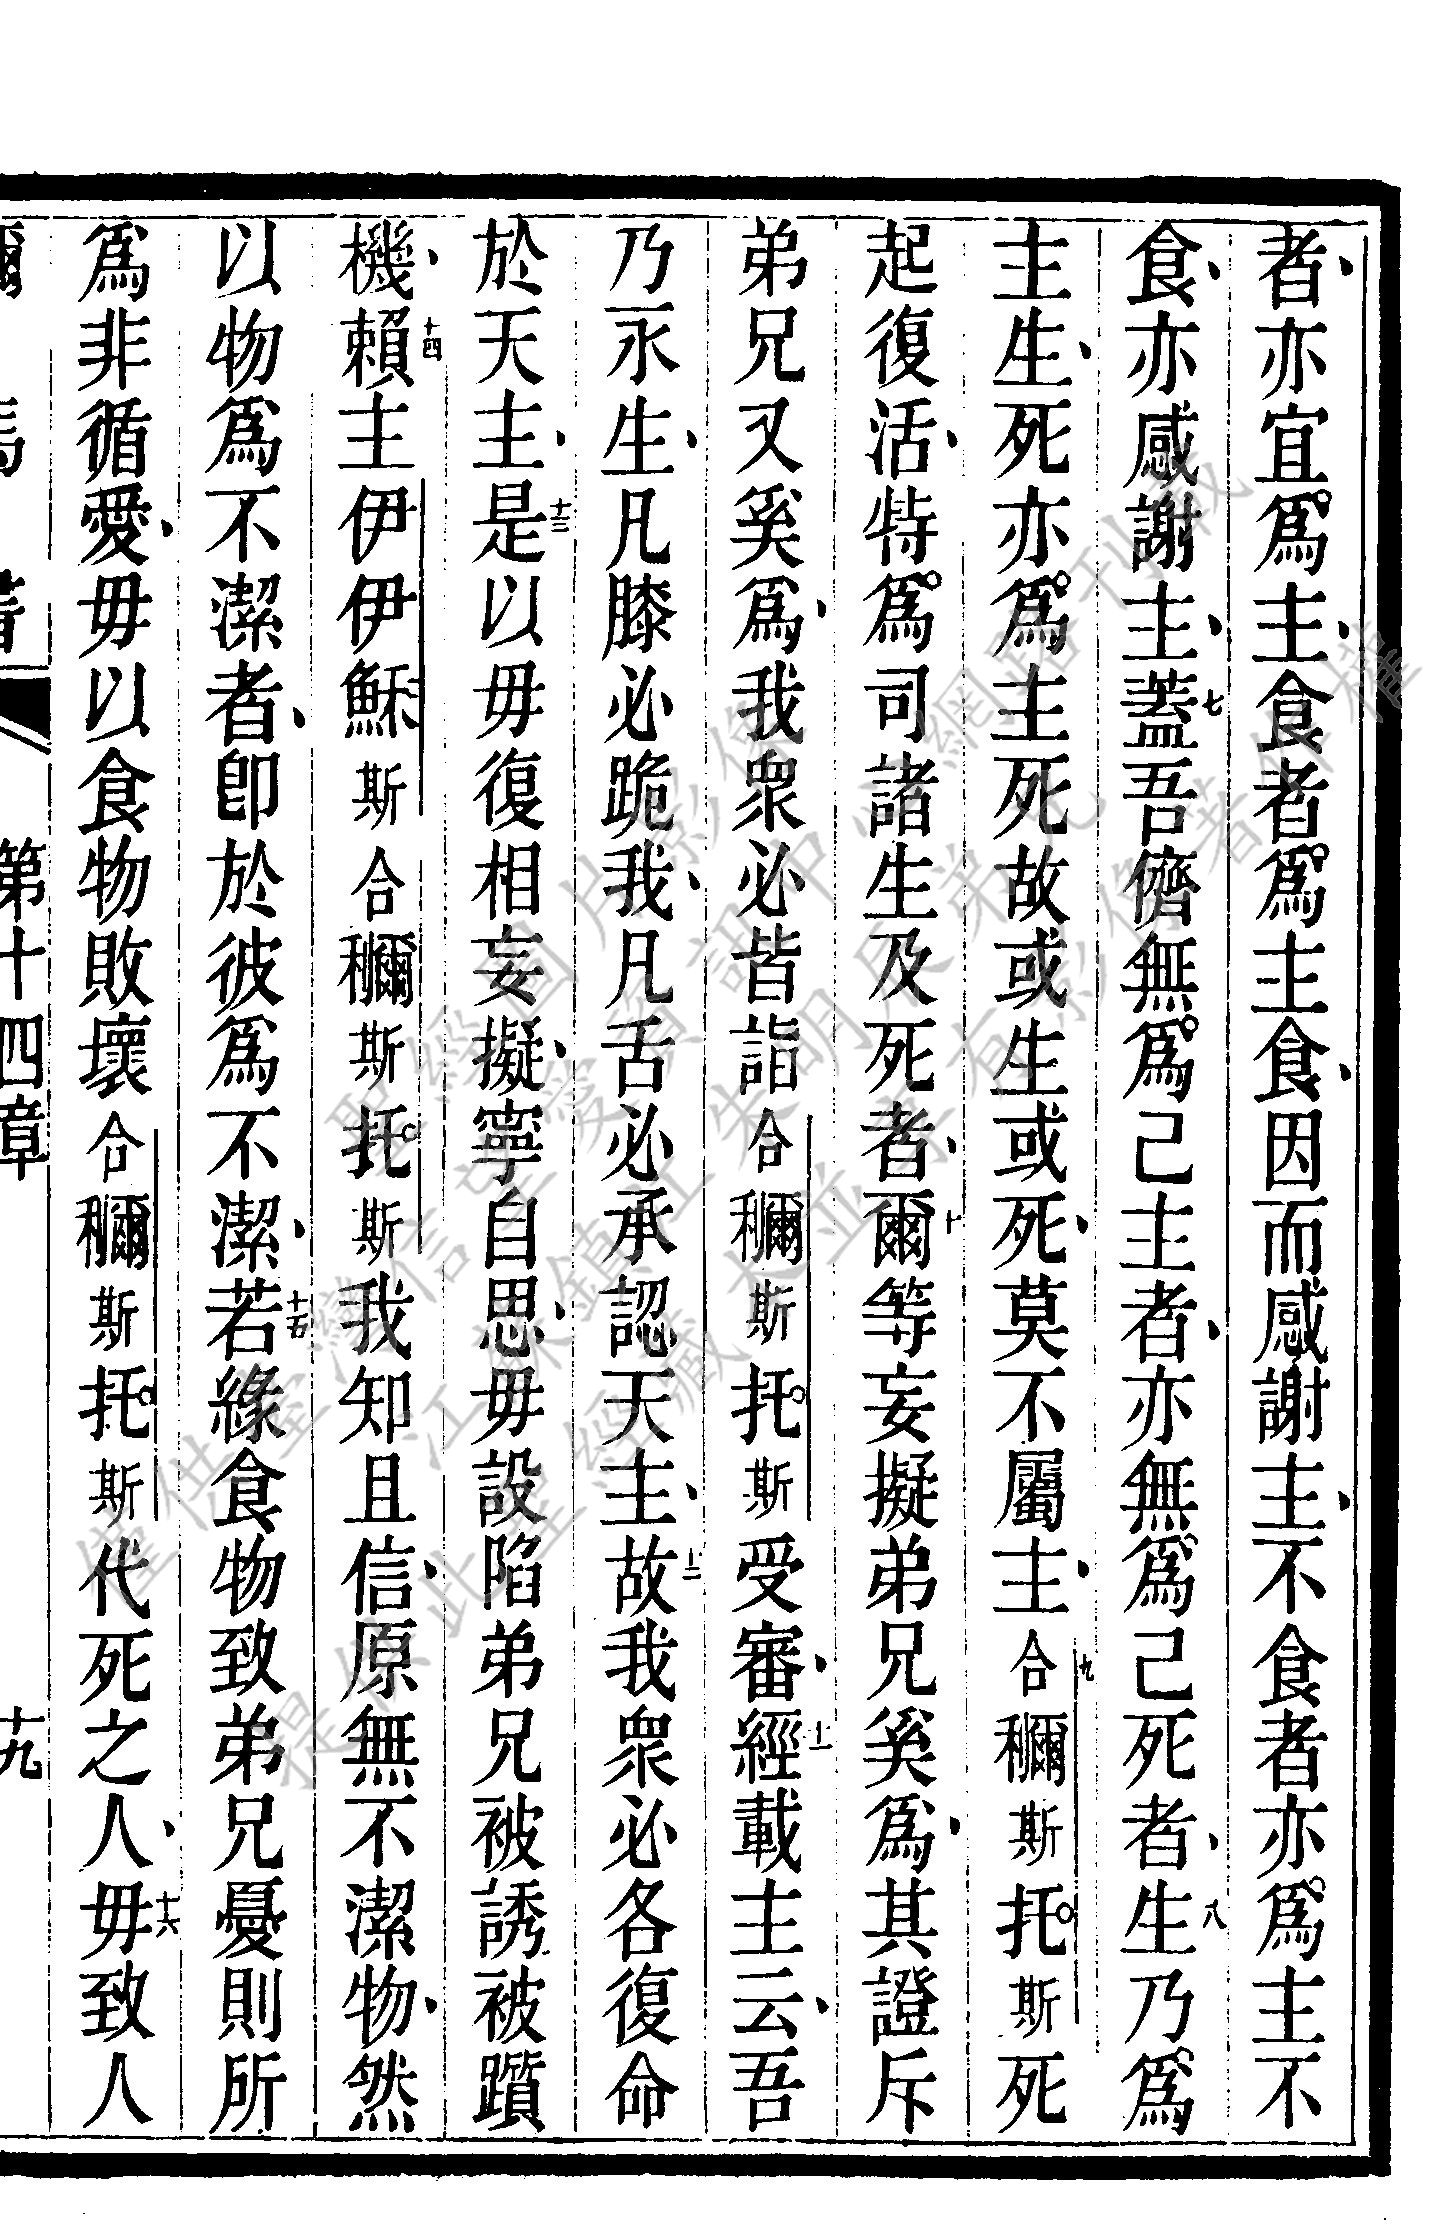 者亦宜爲主食者爲主食因而感謝主不食者亦爲主不
食亦感謝主七蓋吾儕無爲己主者亦無爲己死者八生乃爲
主生死亦爲主死故或生或死莫不屬主九合穪斯托斯死
起復活特爲司諸生及死者十爾等妄擬弟兄奚爲其證斥
弟兄又奚爲我衆必皆詣合穪斯托斯受審十一經載主云吾
乃永生凡膝必跪我凡舌必承認天主十二故我衆必各復命
於天主十三是以毋復相妄擬寧自思毋設陷弟兄被誘被躓
機十四賴主伊伊穌斯合穪斯托斯我知且信原無不潔物然
以物爲不潔者卽於彼爲不潔十五若緣食物致弟兄憂則所
爲非循愛毋以食物敗壞合穪斯托斯代死之人十六毋致人
第十四章 十九
僅供臺灣信望愛